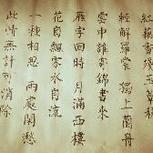 紅藕香殘玉簟秋
輕解羅裳 獨上蘭舟
雲中誰寄錦書來
雁字回時 月滿西樓
花自飄零水自流
一種相思 兩處閒愁
此情無計可消除